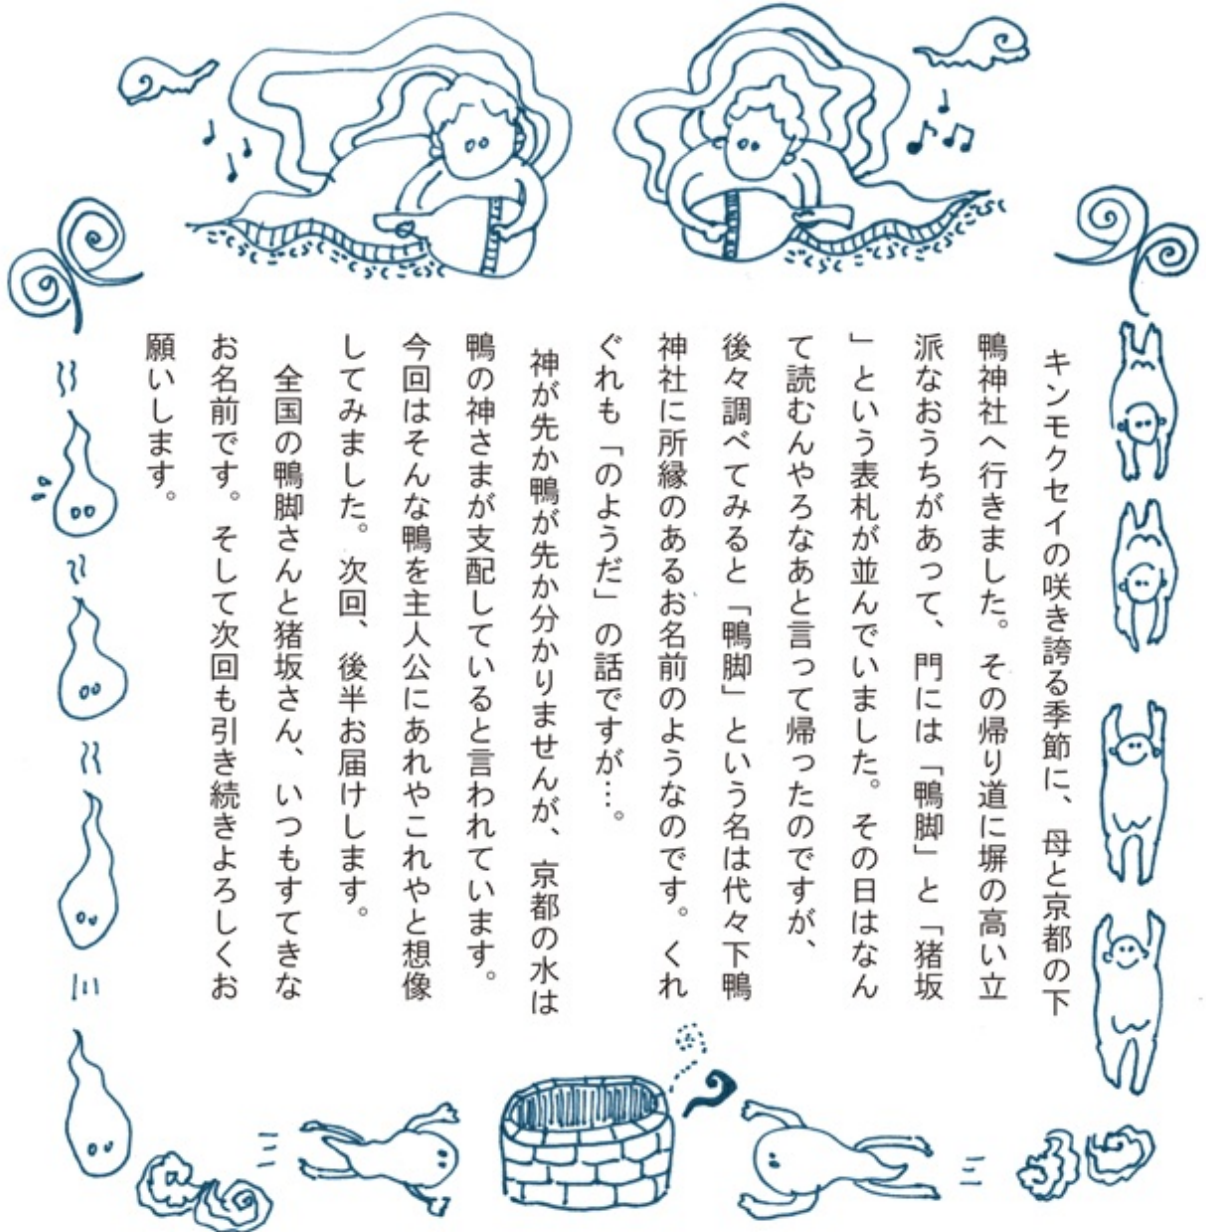 キンモクセイの咲き誇る季節に、母と京都の下
鴨神社へ行きました。その帰り道に塀の高い立
派なおうちがあって、門には「鴨脚」と「猪坂
」という表札が並んでいました。その日はなん
て読むんやろなあと言って帰ったのですが、
後々調べてみると「鴨脚」という名は代々下鴨
神社に所縁のあるお名前のようなのです。くれ
ぐれも「のようだ」の話ですが…。
神が先か鴨が先か分かりませんが、京都の水は
鴨の神さまが支配していると言われています。
今回はそんな鴨を主人公にあれやこれやと想像
してみました。次回、後半お届けします。
全国の鴨脚さんと猪坂さん、いつもすてきな
お名前です。そして次回も引き続きよろしくお
願いします。
ごくらくごくらく
ごくらくごくらく